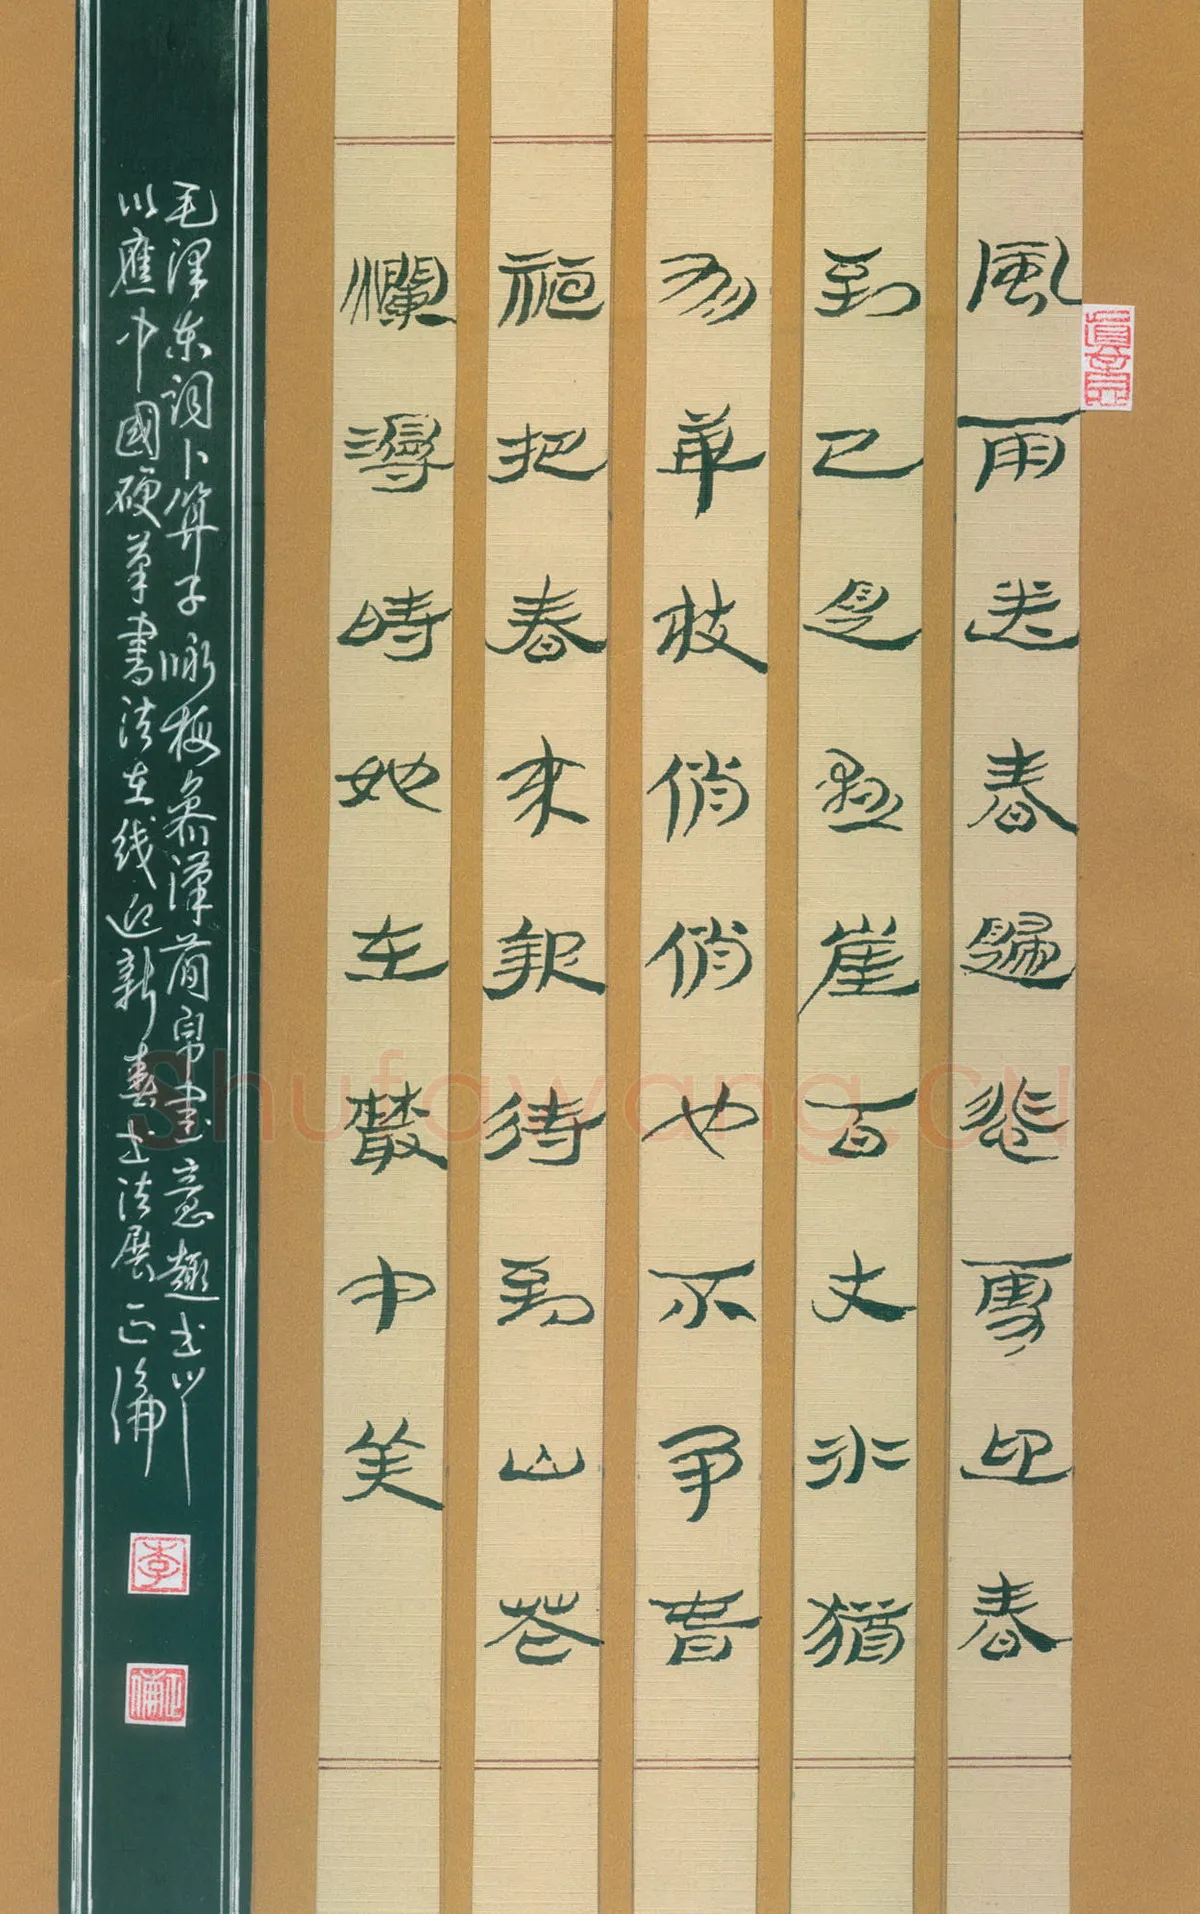 風雨送春歸飛雪迎春
到已是懸崖百丈冰猶
有華枝俏俏也不爭春
祇把春來報待到山花
爛漫時她在叢中笑
毛澤东詞卜算子咏梅參漢简帛書意趣书
以應中國硬筆書法在线迎新春书法展正浦
李
Shufawang.CN